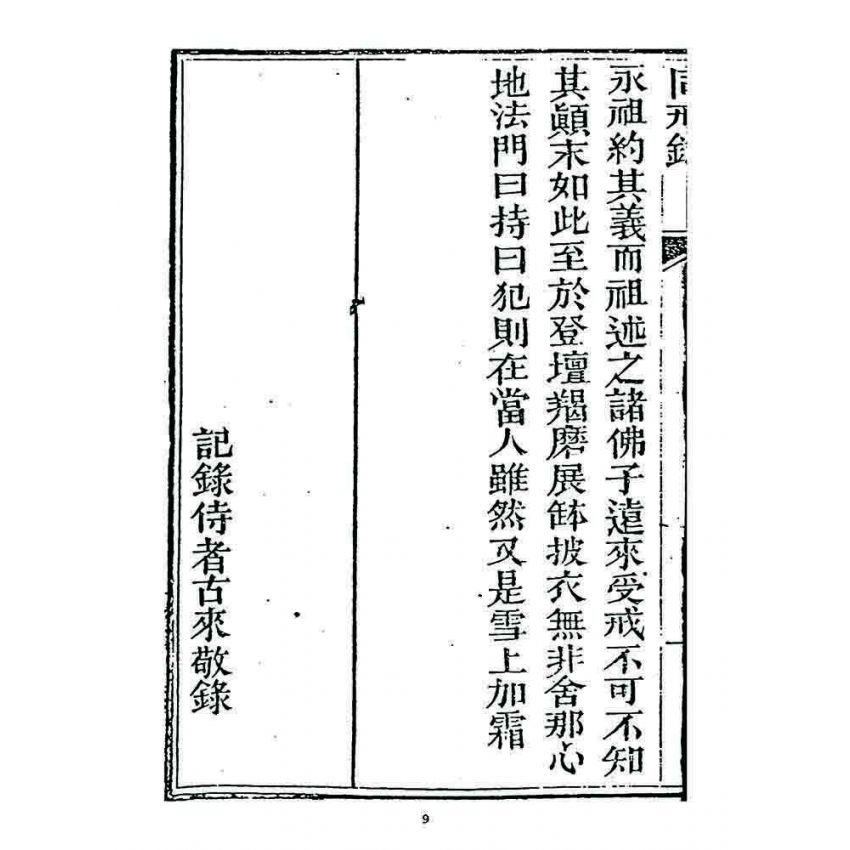 同戒錄
永祖約其義而祖述之諸佛子遠來受戒不可不知
其顚末如此至於登壇羯磨展鉢披衣無非舍那心
地法門曰持曰犯則在當人雖然又是雪上加霜
記錄侍者古來敬錄
9